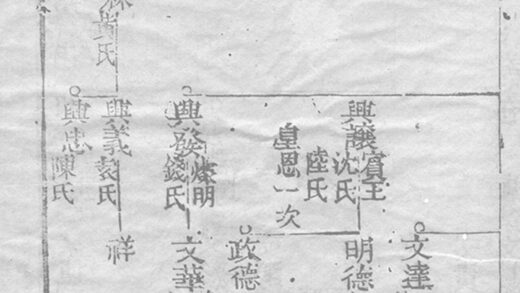 黃氏
興讓
賓王
沈氏
陸氏
皇恩一次
興發
明
錢氏
興義
氏
興忠
陳氏
文達
明德
政德
文華
祥